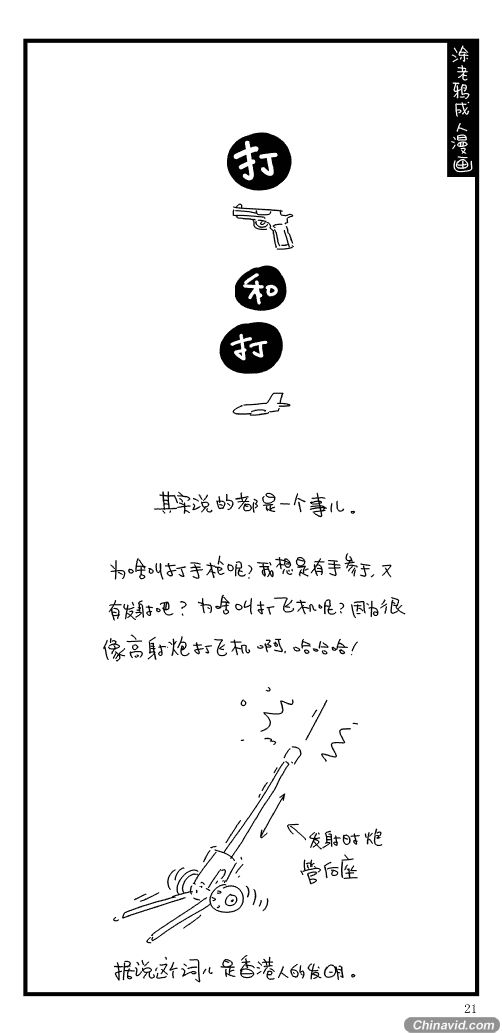 涂老鸦成人漫画
打
和
打
其实说的都是一个事儿。
为啥叫打手枪呢?我想是有手参于,又
有发射吧?为啥叫打飞机呢?因为很
像高射炮打飞机啊,哈哈哈!
发射时炮
管后座
据说这个词儿是香港人的发明。
21
Chinavid.com